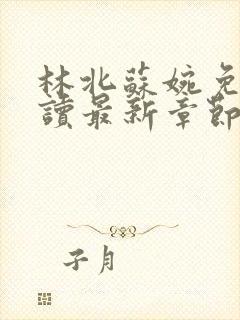 林北蘇婉免
讀最新章節
子月